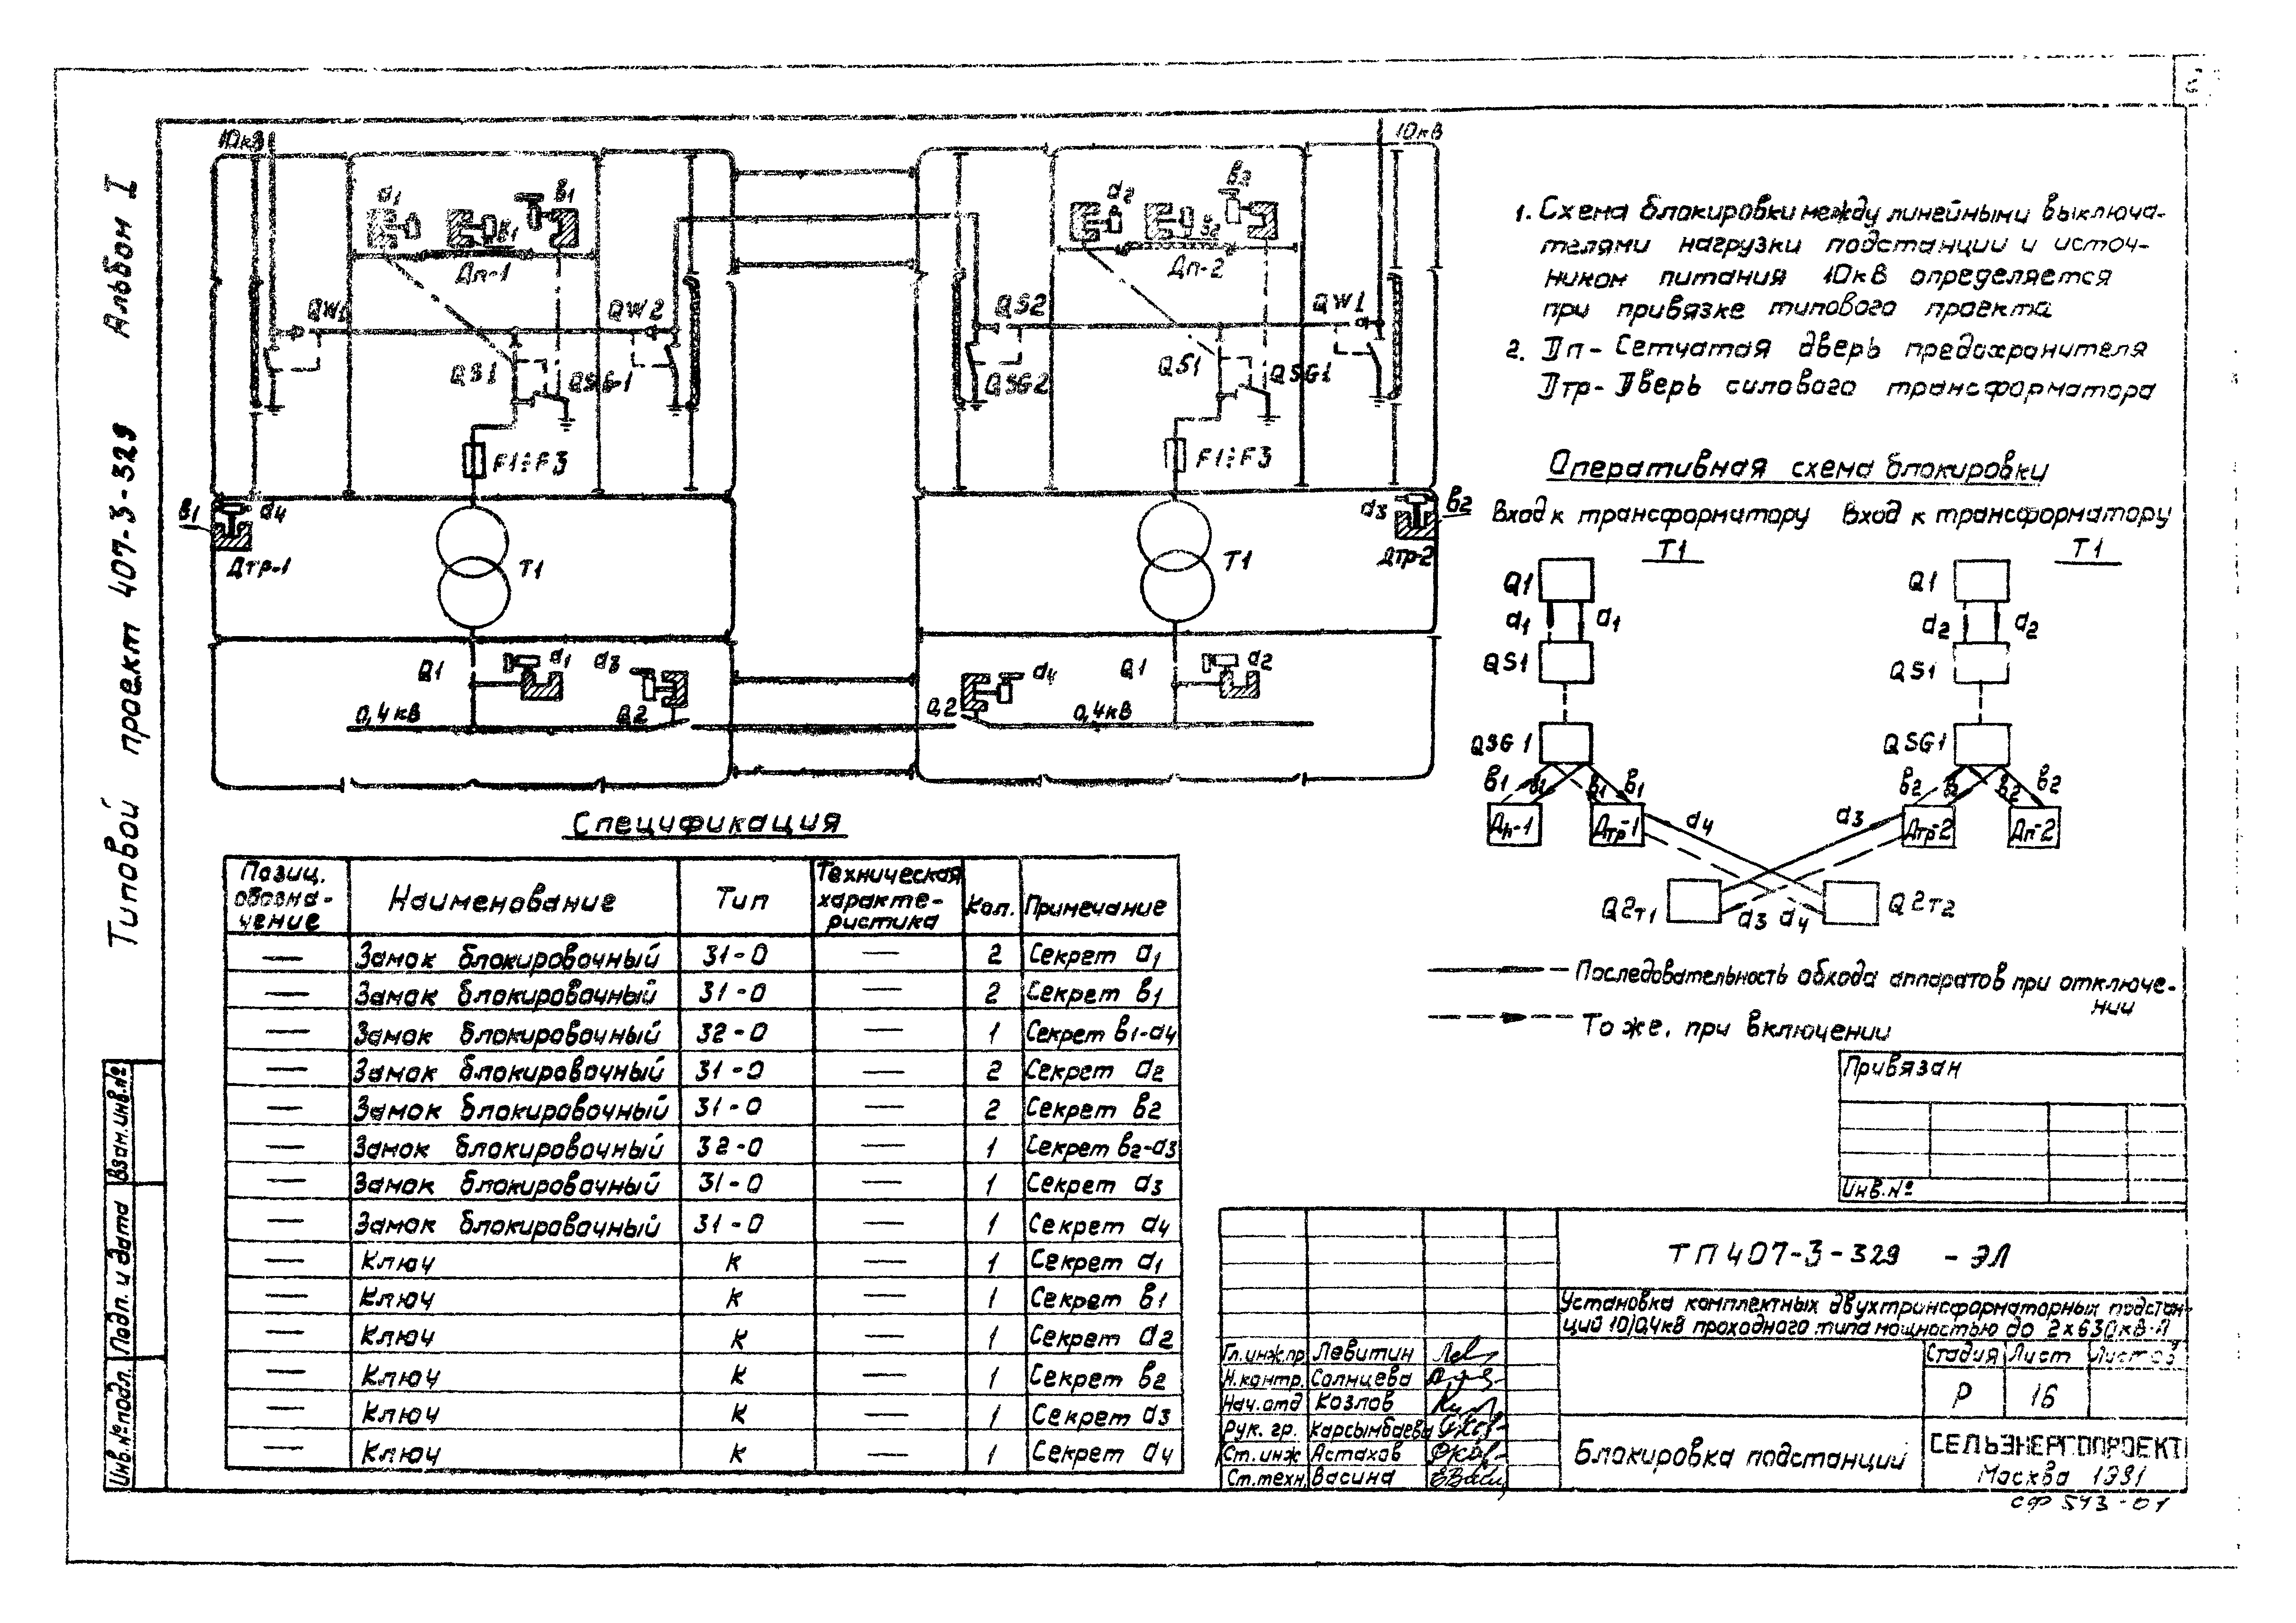 Альбом I
Типовой проект 407-3-329
Взам.инв.№
Подп. и дата
Инв.№подл.
10кВ
10кВ
d1
в1
в1
Дп-1
QW1
QW2
QS1
QSG-1
F1÷F3
d2
в2
в2
Дп-2
QS2
QW1
QS1
QSG2
QSG1
F1÷F3
в1
d4
Дтр-1
T1
d3
в2
Дтр-2
T1
Q1
d1
d3
Q2
0,4кВ
Q2
d4
0,4кВ
Q1
d2
1. Схема блокировки между линейными выключа-
телями нагрузки подстанции и источ-
ником питания 10кВ определяется
при привязке типового проекта
2. Дп- Сетчатая дверь предохранителя
Дтр- Дверь силового трансформатора
Оперативная схема блокировки
Вход к трансформатору Вход к трансформатору
T1 T1
Q1 Q1
d1 d1 d2 d2
QS1 QS1
QSG1 QSG1
в1 в1 в1 в1 в2 в2 в2
Дп-1 Дтр-1 Дтр-2 Дп-2
d4 d3
Q2т1 Q2т2
d3 d4
— Последовательность обхода аппаратов при отключе-
нии
То же, при включении
Спецификация
Позиц. обозна- чение Наименование Тип Техническая характе- ристика Кол. Примечание
— Замок блокировочный 31-0 — 2 Секрет d1
— Замок блокировочный 31-0 — 2 Секрет в1
— Замок блокировочный 32-0 — 1 Секрет в1-d4
— Замок блокировочный 31-0 — 2 Секрет d2
— Замок блокировочный 31-0 — 2 Секрет в2
— Замок блокировочный 32-0 — 1 Секрет в2-d3
— Замок блокировочный 31-0 — 1 Секрет d3
— Замок блокировочный 31-0 — 1 Секрет d4
— Ключ К — 1 Секрет d1
— Ключ К — 1 Секрет в1
— Ключ К — 1 Секрет d2
— Ключ К — 1 Секрет в2
— Ключ К — 1 Секрет d3
— Ключ К — 1 Секрет d4
Привязан
Инв.№
ТП 407-3-329 - ЭЛ
Установка комплектных двухтрансформаторных подстан-
ций 10/0,4кВ проходного типа мощностью до 2х630кВ·А
Гл.инж.пр Левитин
Н.контр. Солнцева
Нач.отд Козлов
Рук. гр. Карсымбаева
Ст.инж Астахов
Ст.техн. Васина
Стадия Лист Листов
Р 16
Блокировка подстанций
СЕЛЬЭНЕРГОПРОЕКТ
Москва 1981
СФ 543-01